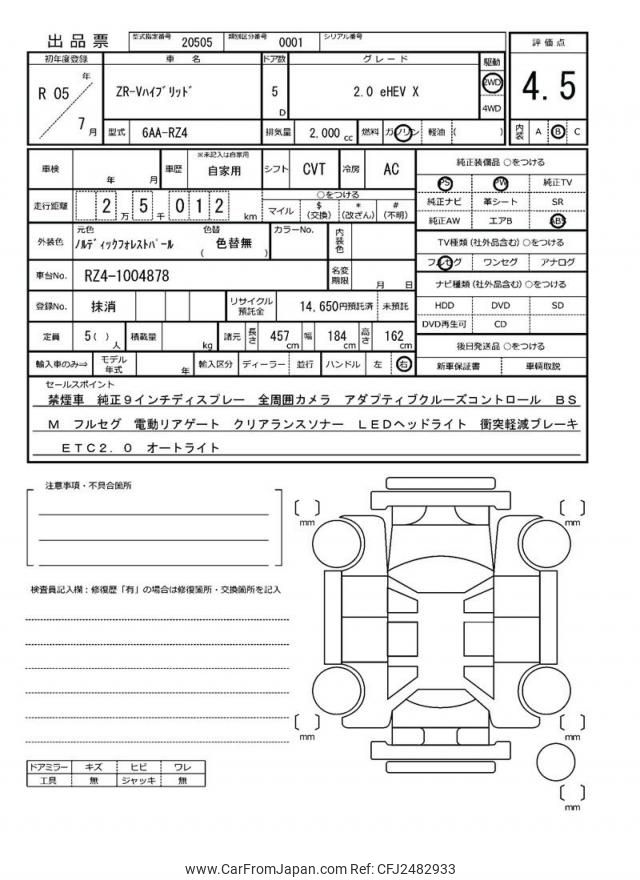 出品票 型式指定番号 20505 類別区分番号 0001 シリアル番号
初年度登録 車 名 ドア数 グレード 駆動 評価点
R 05 年 7 月 ZR-Vﾊｲﾌﾞﾘｯﾄﾞ 5 D 2.0 eHEV X 2WD 4WD 4.5
型式 6AA-RZ4 排気量 2,000 cc 燃料 ガソリン 軽油 ( ) 内装 A B C
車検 年 月 車歴 ※未記入は自家用 自家用 シフト CVT 冷房 AC 純正装備品 ○をつける
PS PW 純正TV
走行距離 2 万 5 千 0 1 2 km ○をつける
マイル $ (交換) * (改ざん) # (不明) 純正ナビ 革シート SR
純正AW エアB ABS
外装色 元色 ﾉﾙﾃﾞｨｯｸﾌｫﾚｽﾄﾊﾟｰﾙ 色替 ( 色替無 ) カラーNo. 内装色 TV種類 (社外品含む) ○をつける
フルセグ ワンセグ アナログ
車台No. RZ4-1004878 名変期限 月 日 ナビ種類 (社外品含む) ○をつける
登録No. 抹消 リサイクル預託金 14,650円預託済 未預託 HDD DVD SD
DVD再生可 CD
定員 5 ( ) 人 積載量 kg 諸元 長さ 457 cm 幅 184 cm 高さ 162 cm 後日発送品 ○をつける
輸入車のみ⇒ モデル年式 年 輸入区分 ディーラー 並行 ハンドル 左 右 新車保証書 車輌取説
セールスポイント
禁煙車 純正9インチディスプレー 全周囲カメラ アダプティブクルーズコントロール BS
M フルセグ 電動リアゲート クリアランスソナー LEDヘッドライト 衝突軽減ブレーキ
ETC2.0 オートライト
注意事項・不具合箇所
検査員記入欄：修復歴「有」の場合は修復箇所・交換箇所を記入
mm
mm
mm
mm
mm
ドアミラー キズ ヒビ ワレ
工具 無 ジャッキ 無
www.CarFromJapan.com Ref: CFJ2482933